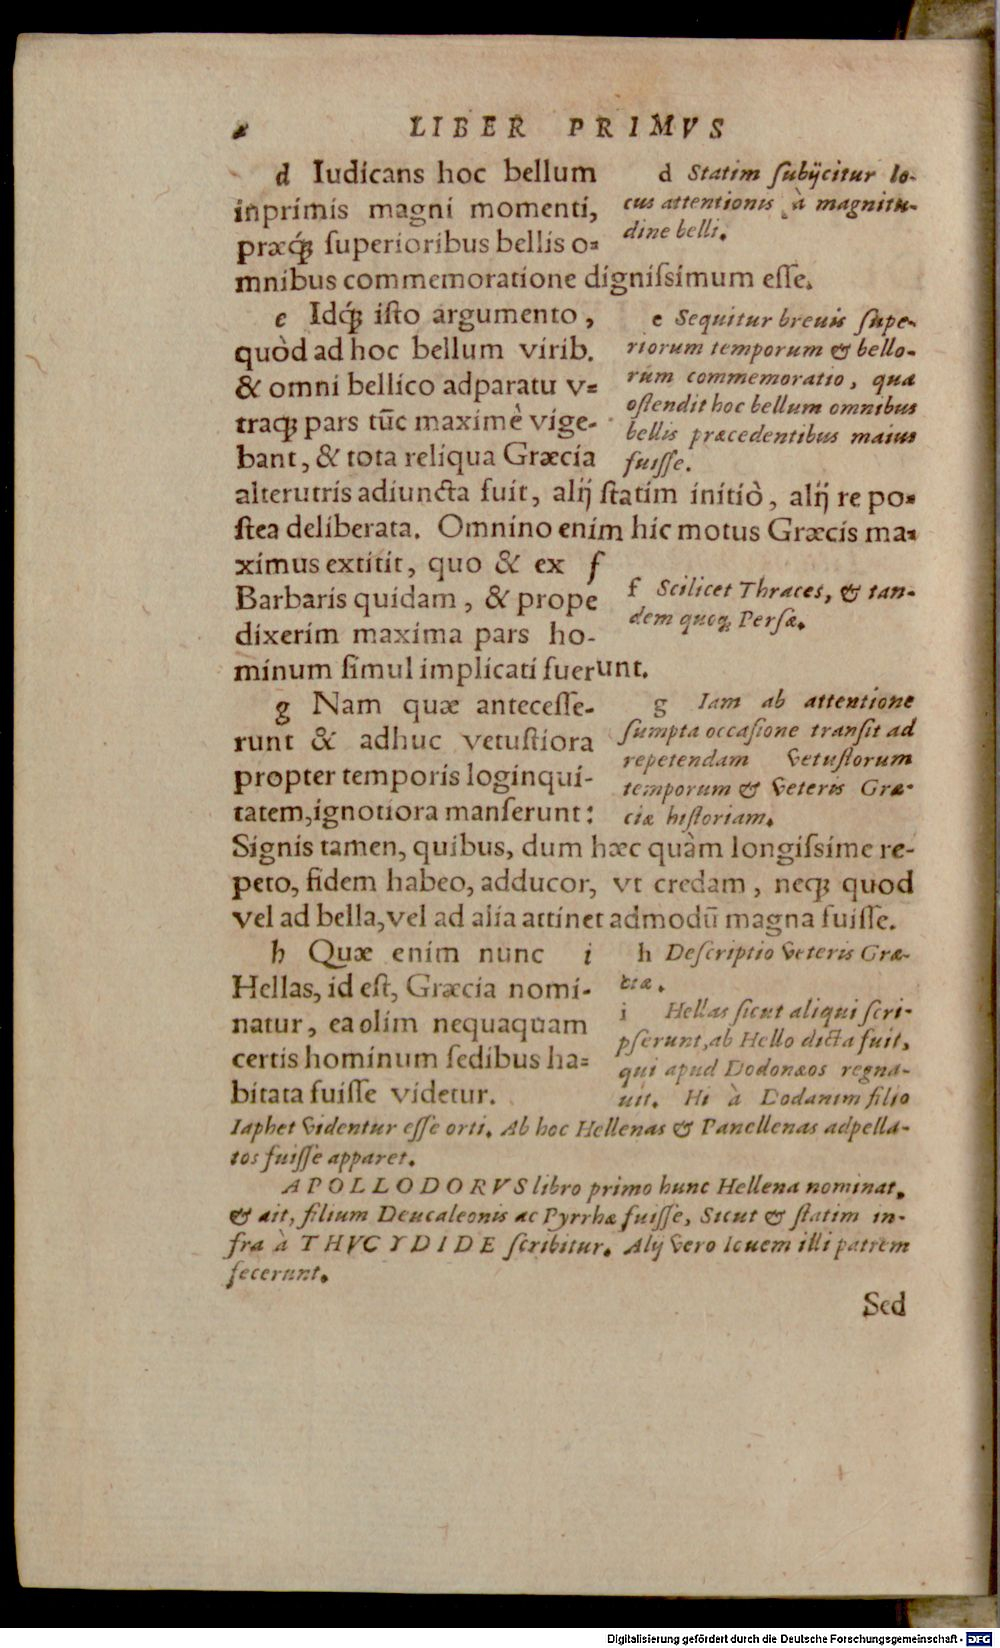 2 LIBER PRIMVS
d Iudicans hoc bellum
inprimis magni momenti,
præq́ꝫ superioribus bellis o⸗
mnibus commemoratione dignissimum esse.
d Statim subijcitur lo-
cus attentionis à magnitu-
dine belli.
e Idq́ꝫ isto argumento,
quòd ad hoc bellum virib.
& omni bellico adparatu v⸗
traqꝫ pars tūc maximè vige-
bant, & tota reliqua Græcia
alterutris adiuncta fuit, alij statim initiò, alij re po⸗
stea deliberata. Omnino enim hic motus Græcis ma⸗
ximus extitit, quo & ex f
Barbaris quidam, & prope
dixerim maxima pars ho-
minum simul implicati fuerunt.
e Sequitur breuis supe-
riorum temporum & bello-
rum commemoratio, qua
ostendit hoc bellum omnibus
bellis præcedentibus maius
fuisse.
f Scilicet Thraces, & tan-
dem quoqꝫ Persæ.
g Nam quæ antecesse-
runt & adhuc vetustiora
propter temporis loginqui-
tatem, ignotiora manserunt:
Signis tamen, quibus, dum hæc quàm longissime re-
peto, fidem habeo, adducor, vt credam, neqꝫ quod
vel ad bella, vel ad alia attinet admodū magna fuisse.
g Iam ab attentione
sumpta occasione transit ad
repetendam vetustorum
temporum & veteris Græ-
ciæ historiam.
h Quæ enim nunc i
Hellas, id est, Græcia nomi-
natur, ea olim nequaquam
certis hominum sedibus ha⸗
bitata fuisse videtur.
h Descriptio veteris Græ-
ciæ.
i Hellas sicut aliqui scri-
pserunt, ab Hello dicta fuit,
qui apud Dodonæos regna-
uit. Hi à Dodanim filio
Iaphet videntur esse orti. Ab hoc Hellenas & Panellenas adpella-
tos fuisse apparet.
APOLLODORVS libro primo hunc Hellena nominat,
& ait, filium Deucaleonis ac Pyrrhæ fuisse, Sicut & statim in-
fra à THVCYDIDE scribitur. Alij vero Iouem illi patrem
fecerunt.
Sed
Digitalisierung gefördert durch die Deutsche Forschungsgemeinschaft - DFG